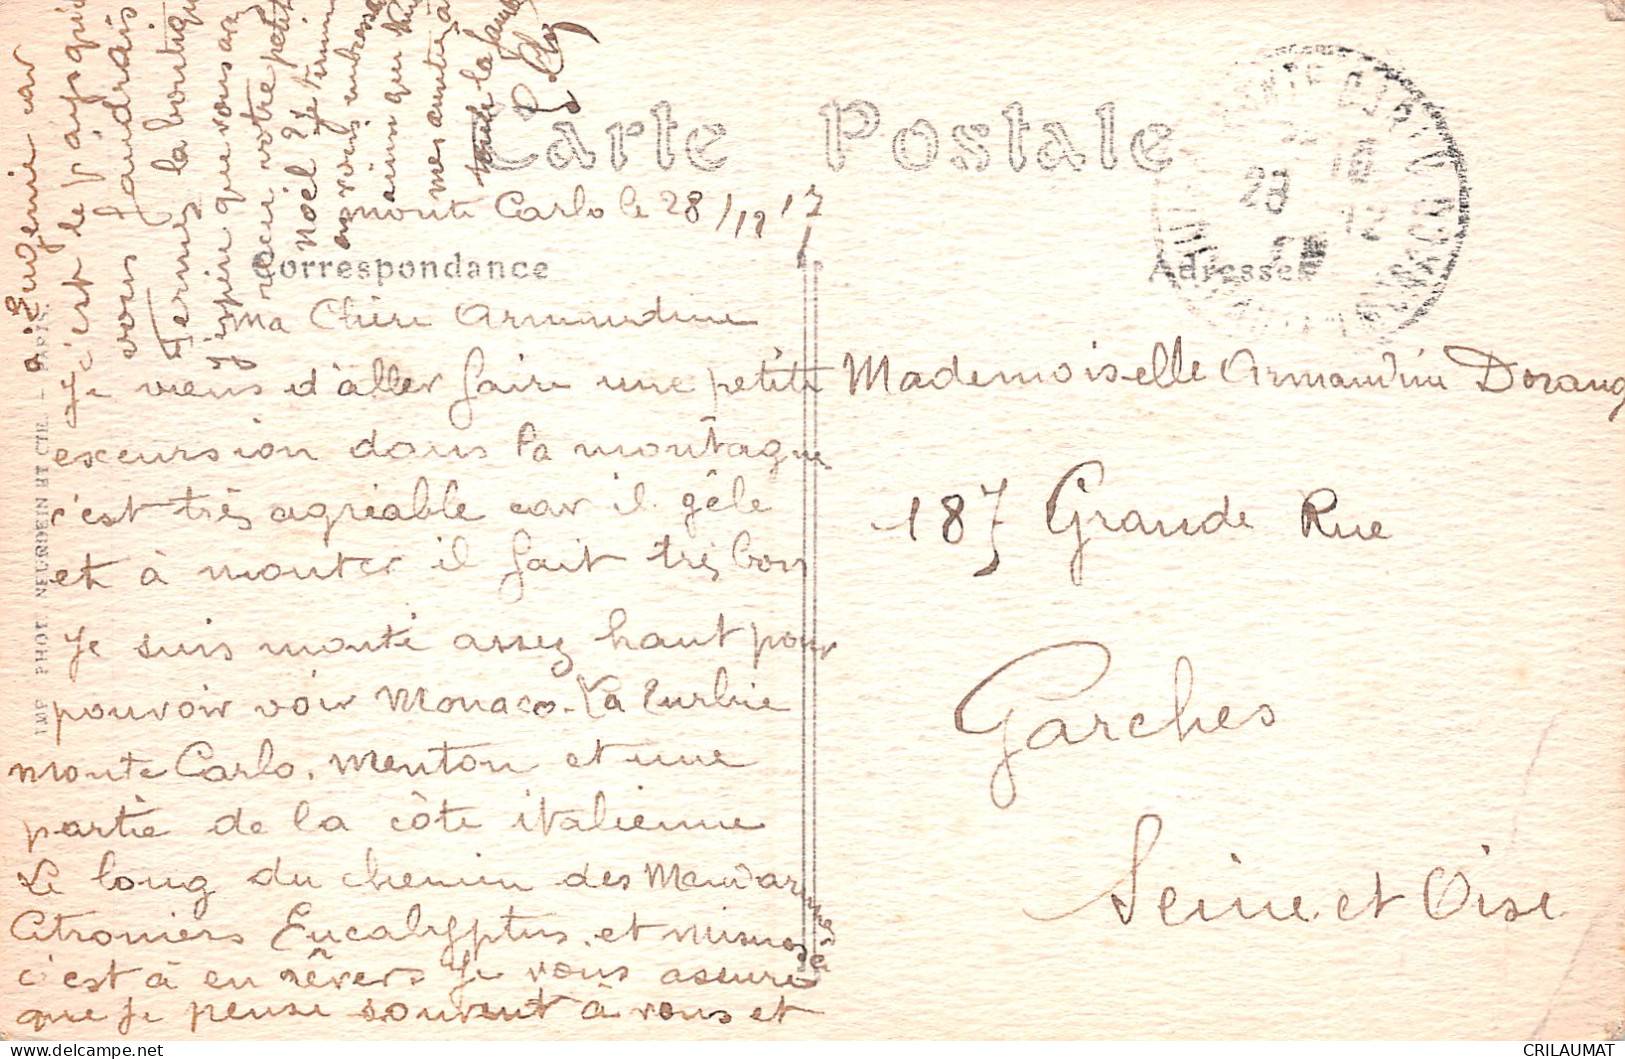 Carte Postale
Monte Carlo le 28/12 17
Correspondance
Adresse
Ma Chère Armandine
Je viens d'aller faire une petite
excursion dans la montagne
c'est très agréable car il gèle
et à monter il fait très bon
Je suis monté assez haut pour
pouvoir voir Monaco. La Turbie
Monte Carlo. Menton et une
partie de la côte italienne
Le long du chemin des Mandarines
Citroniers Eucalyptus. et Mimosas
c'est à en rêver. Je vous assure
que je pense souvent à vous et
à Eugénie car
c'est le Pays qui
vous faudrais
Fermez la boutique
J'espère que vous avez
reçu votre petit
Noël et je termine
en vous embrassant
mes amitiés à
toute la famille
Mademoiselle Armandine Dorang
187 Grande Rue
Garches
Seine et Oise
IMP. PHOT. NEURDEIN ET CIE - PARIS
CRILAUMAT